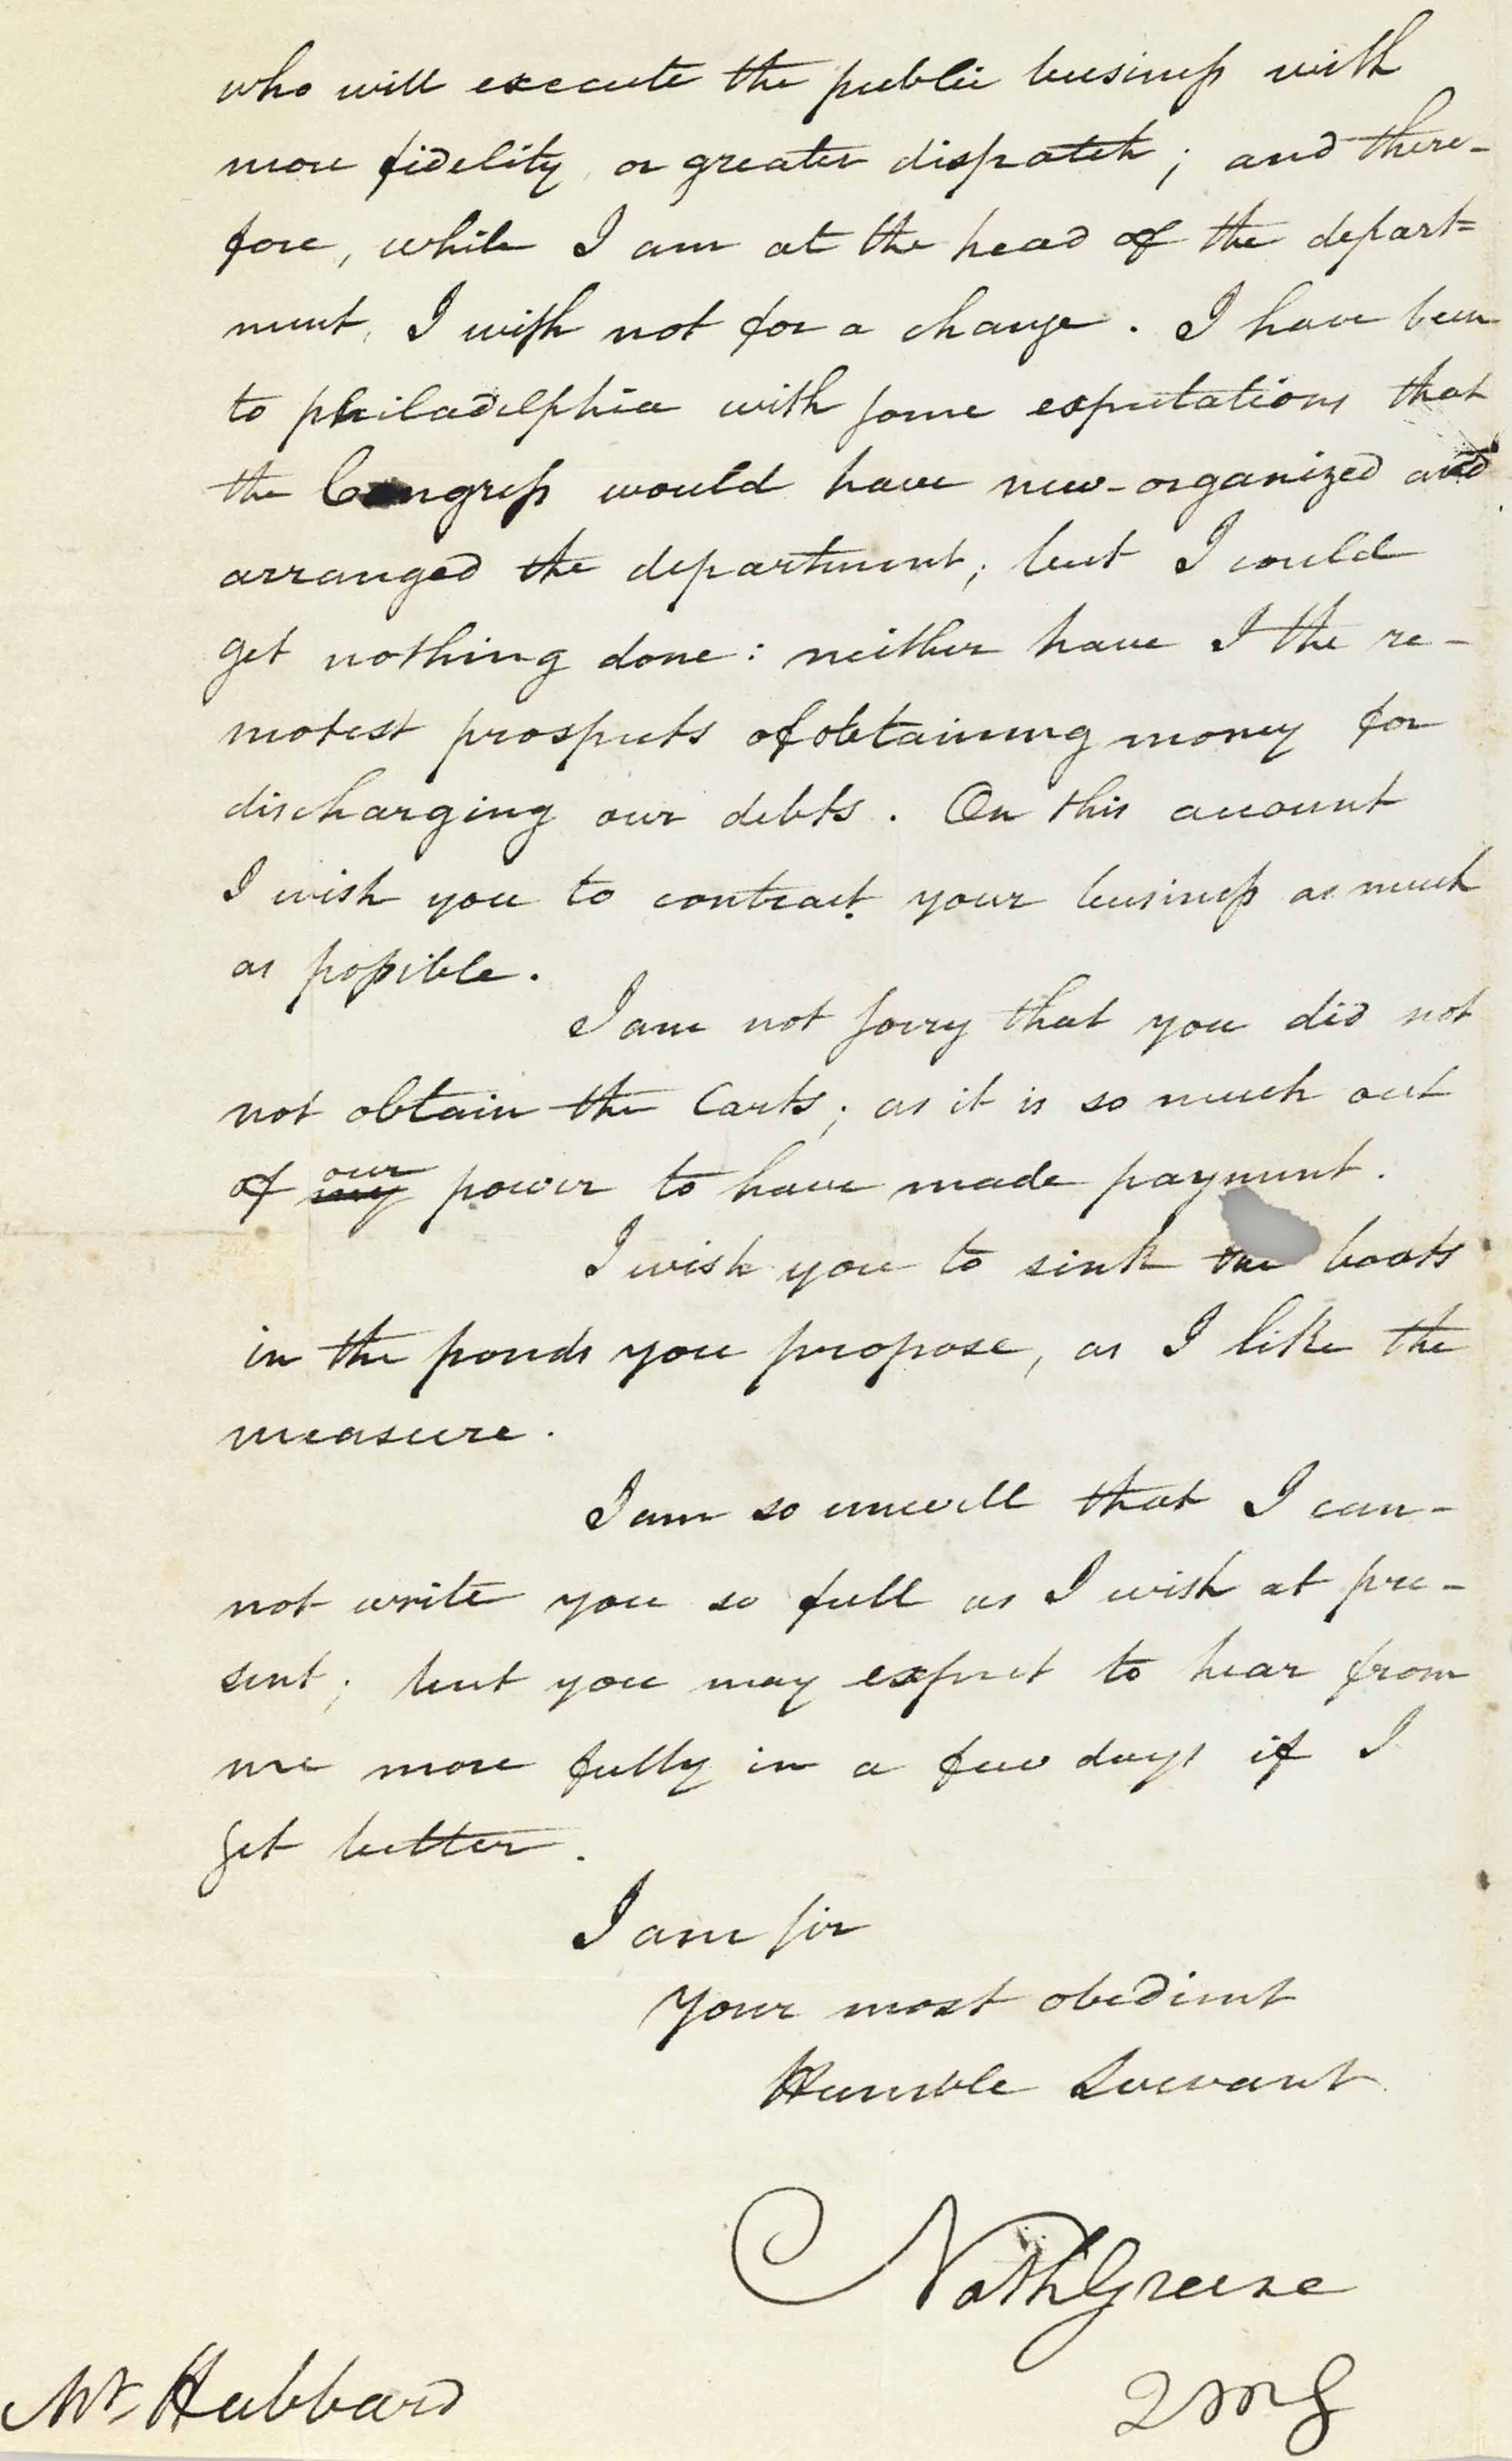 who will execute the public business with
more fidelity, or greater dispatch; and there-
fore, while I am at the head of the depart=
ment, I wish not for a change. I have been
to philadelphia with some expectations that
the Congress would have new-organized and
arranged the department; but I could
get nothing done: neither have I the re-
motest prospects of obtaining money for
discharging our debts. On this account
I wish you to contract your business as much
as possible.
I am not sorry that you did not
not obtain the Carts; as it is so much out
of my our power to have made payment.
I wish you to sink the boats
in the ponds you propose, as I like the
measure.
I am so unwell that I can-
not write you so full as I wish at pre-
sent; but you may expect to hear from
me more fully in a few days if I
get better.
I am sir
Your most obedient
Humble Servant
Nath Greene
QMG
Mr. Hubbard